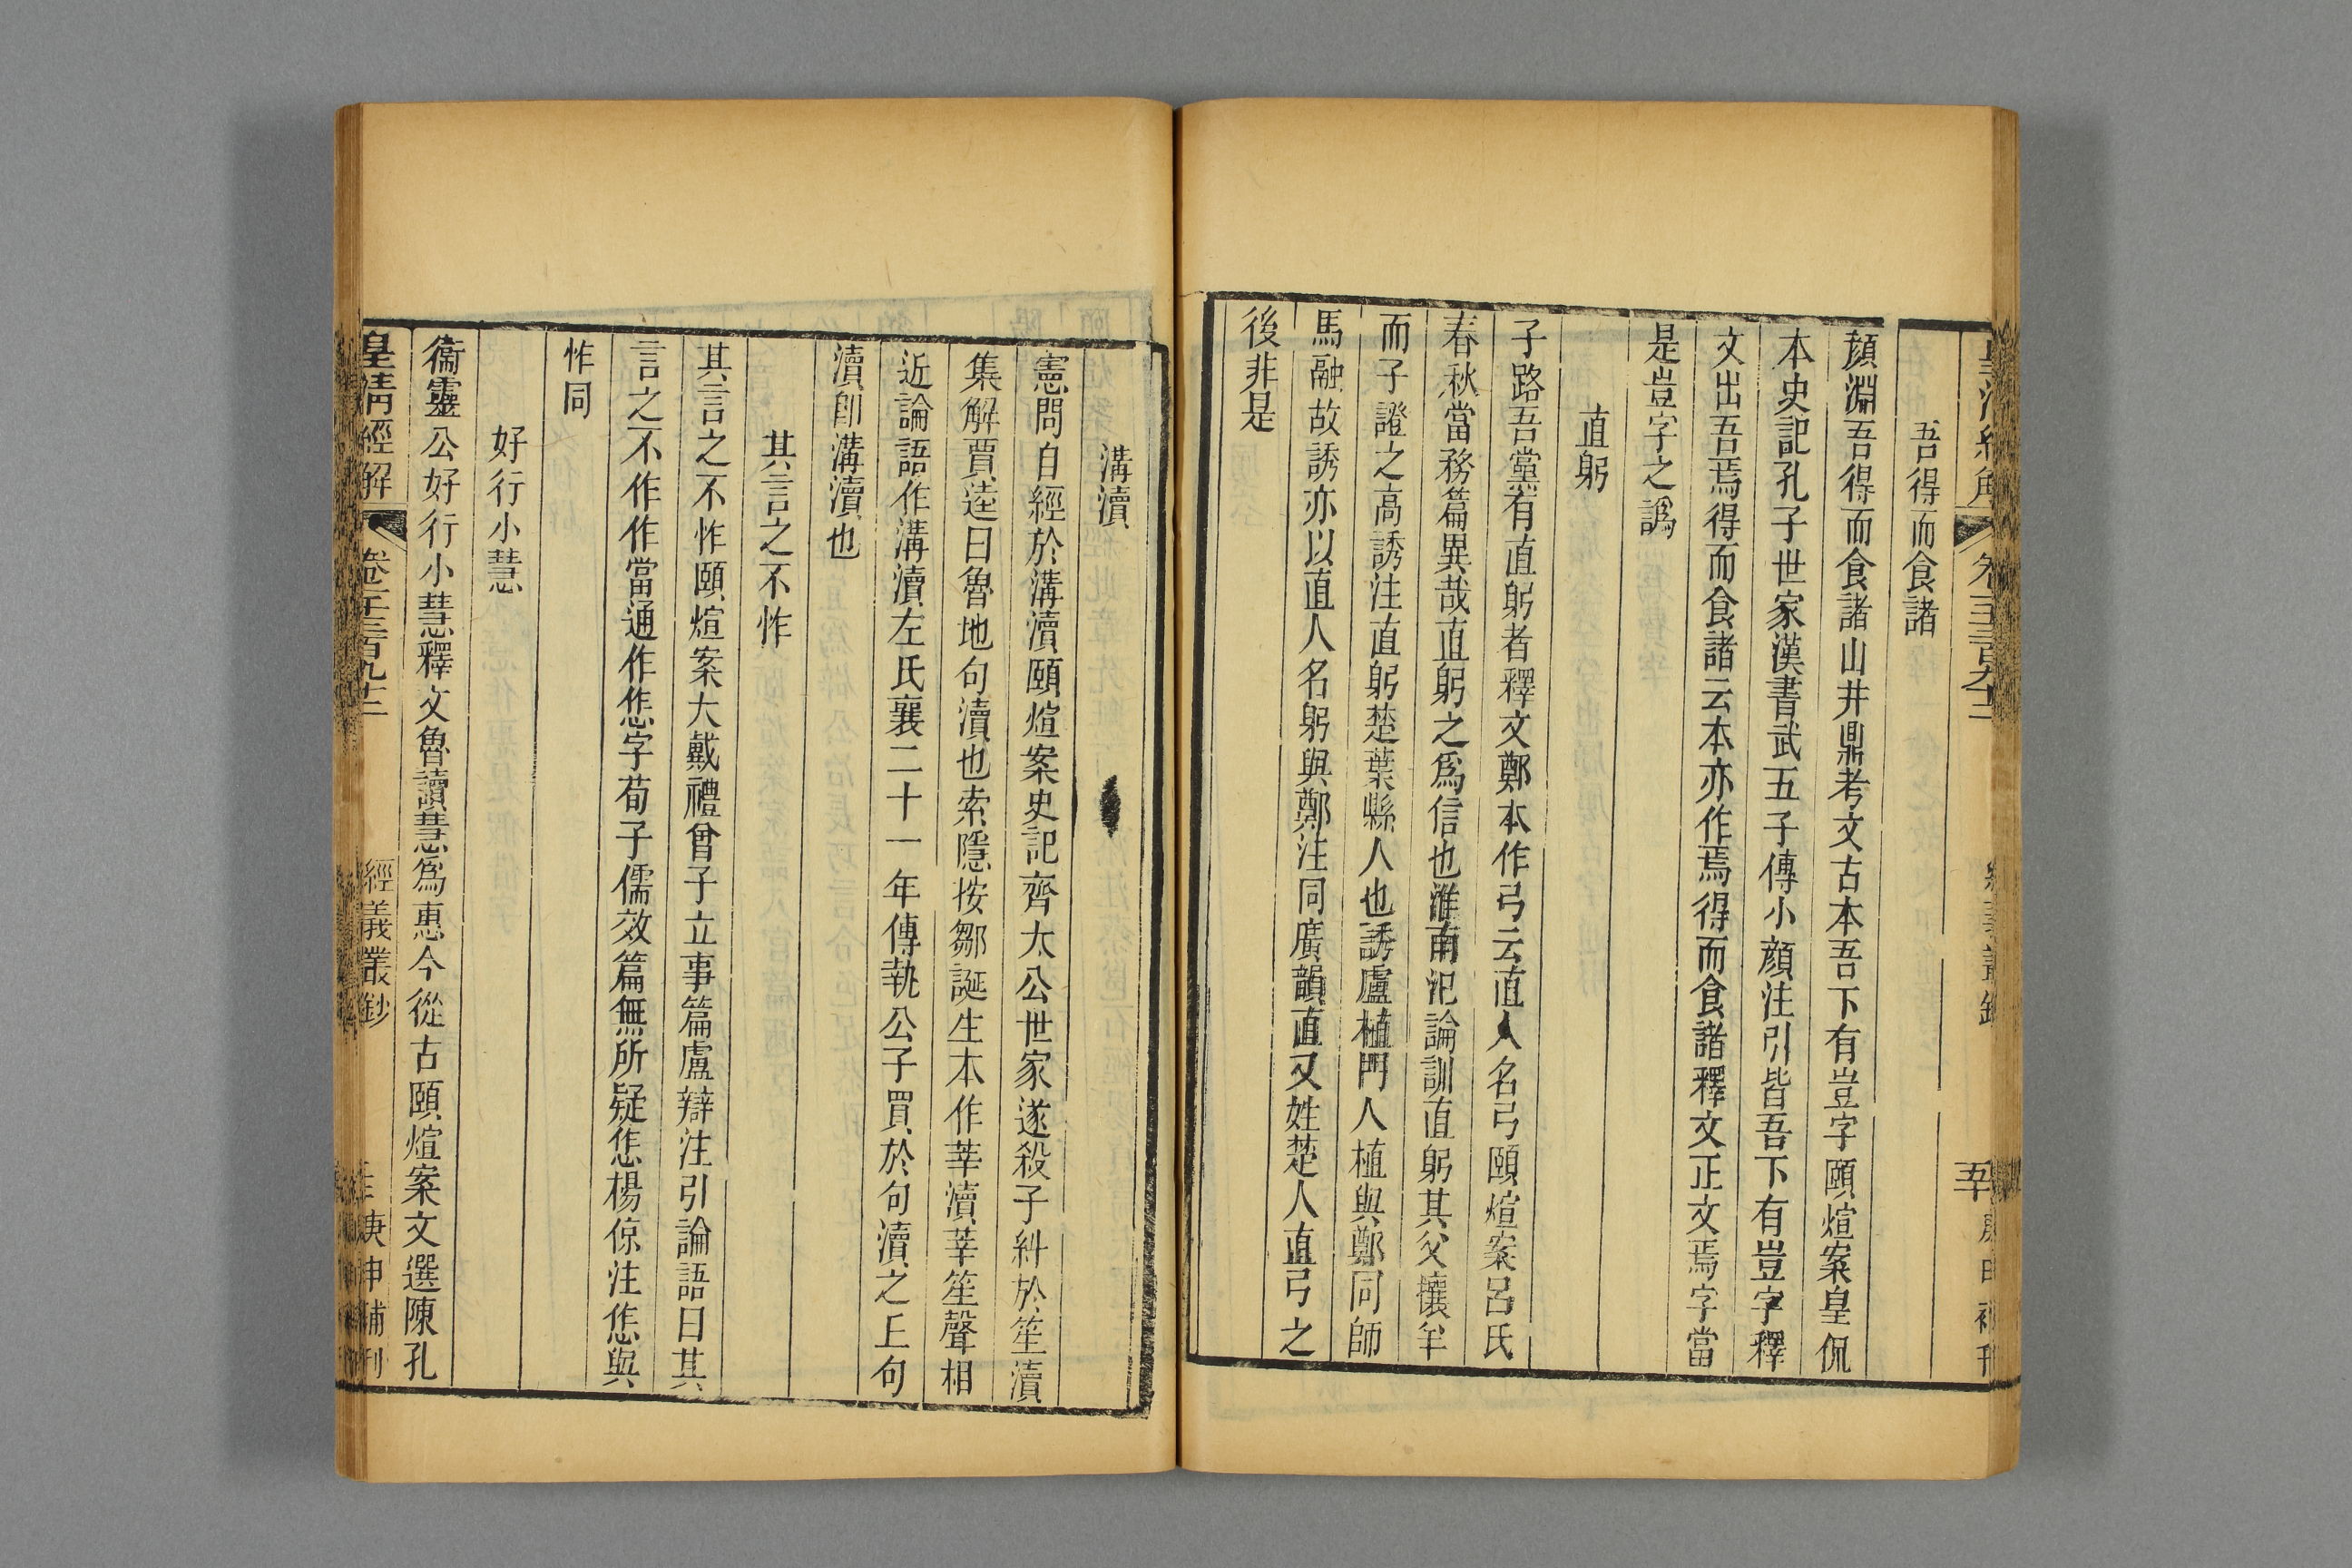 吾得而食諸
顏淵吾得而食諸山井鼎考文古本吾下有豈字頤煊案皇侃
本史記孔子世家漢書武五子傳小顏注引皆吾下有豈字釋
文出吾焉得而食諸云本亦作焉得而食諸釋文正文焉字當
是豈字之譌
直躬
子路吾黨有直躬者釋文鄭本作弓云直人名弓頤煊案呂氏
春秋當務篇異哉直躬之爲信也淮南氾論訓直躬其父攘羊
而子證之高誘注直躬楚葉縣人也誘盧植門人植與鄭同師
馬融故誘亦以直人名躬與鄭注同廣韻直又姓楚人直弓之
後非是
溝瀆
憲問自經於溝瀆頤煊案史記齊太公世家遂殺子糾於笙瀆
集解賈逵曰魯地句瀆也索隱按鄒誕生本作莘瀆莘笙聲相
近論語作溝瀆左氏襄二十一年傳執公子買於句瀆之丘句
瀆卽溝瀆也
其言之不怍
其言之不怍頤煊案大戴禮曾子立事篇盧辯注引論語曰其
言之不作作當通作㤰字荀子儒效篇無所疑㤰楊倞注㤰與
怍同
好行小慧
衞靈公好行小慧釋文魯讀慧爲惠今從古頤煊案文選陳孔
皇淸經解 卷一千三百九十二 經義叢鈔 庚申補刊